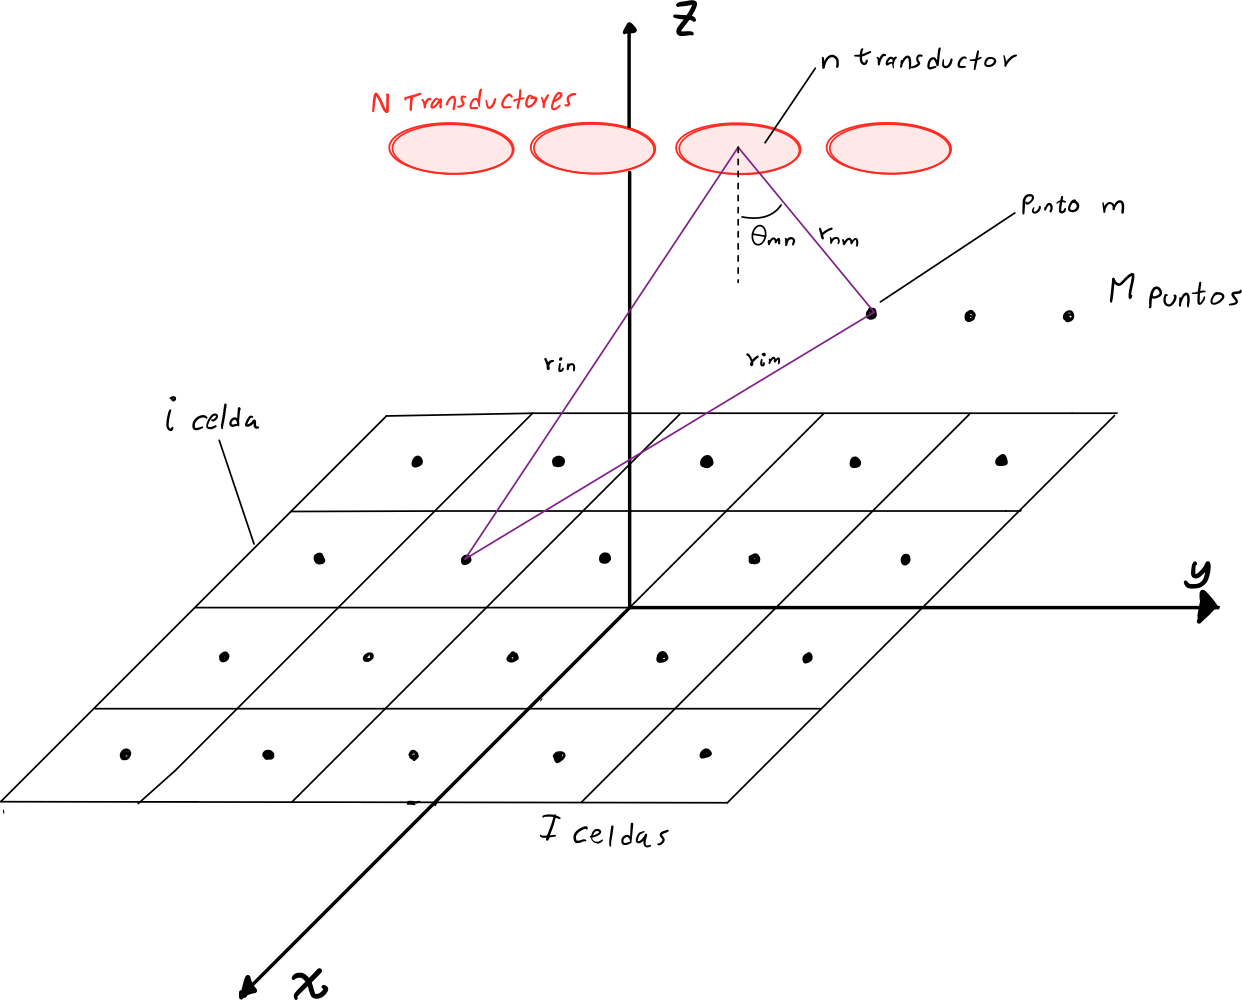 z
n transductor
N Transductores
Punto m
θmn
rnm
M Puntos
rin
rim
i celda
y
I celdas
x